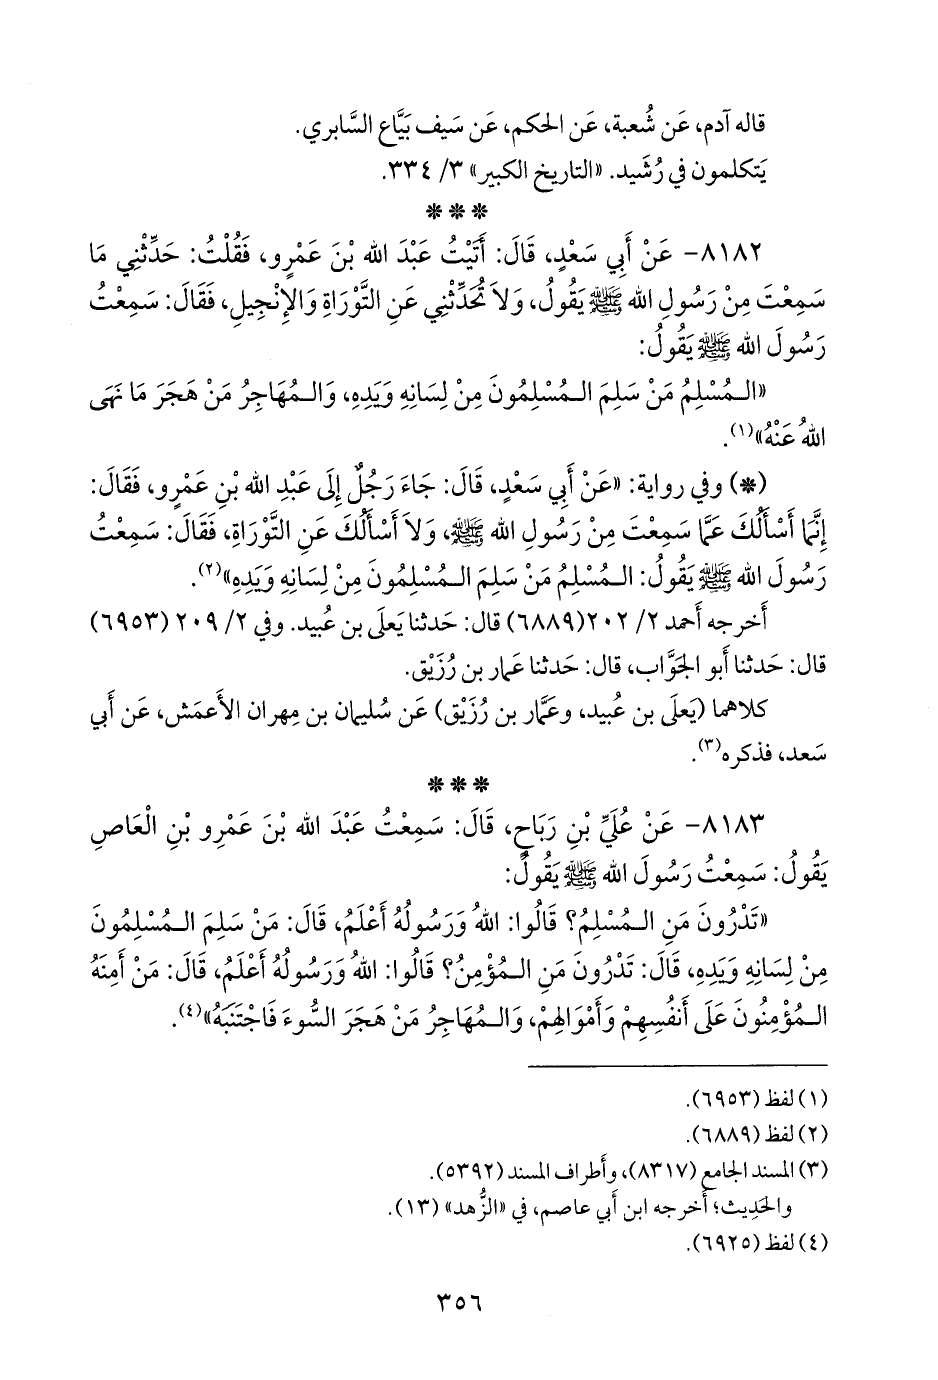 قاله آدم، عَن شُعبة، عَن الحكم، عَن سَيف بَيَّاع السَّابري.
يَتكلمون في رُشَيد. «التاريخ الكبير» ٣/ ٣٣٤.
* * *
٨١٨٢- عَنْ أَبِي سَعْدٍ، قَالَ: أَتَيْتُ عَبْدَ الله بْنَ عَمْرٍو، فَقُلْتُ: حَدِّثْنِي مَا
سَمِعْتَ مِنْ رَسُولِ الله ﷺ يَقُولُ، وَلاَ تُحَدِّثْنِي عَنِ التَّوْرَاةِ وَالإِنْجِيلِ، فَقَالَ: سَمِعْتُ
رَسُولَ الله ﷺ يَقُولُ:
«الـمُسْلِمُ مَنْ سَلِمَ الـمُسْلِمُونَ مِنْ لِسَانِهِ وَيَدِهِ، وَالـمُهَاجِرُ مَنْ هَجَرَ مَا نَهَى
اللهُ عَنْهُ»(١).
(*) وفي رواية: «عَنْ أَبِي سَعْدٍ، قَالَ: جَاءَ رَجُلٌ إِلَى عَبْدِ الله بْنِ عَمْرٍو، فَقَالَ:
إِنَّمَا أَسْأَلُكَ عَمَّا سَمِعْتَ مِنْ رَسُولِ الله ﷺ، وَلاَ أَسْأَلُكَ عَنِ التَّوْرَاةِ، فَقَالَ: سَمِعْتُ
رَسُولَ الله ﷺ يَقُولُ: الـمُسْلِمُ مَنْ سَلِمَ الـمُسْلِمُونَ مِنْ لِسَانِهِ وَيَدِهِ»(٢).
أَخرجه أَحمد ٢/ ٢٠٢(٦٨٨٩) قال: حَدثنا يَعلَى بن عُبيد. وفي ٢/ ٢٠٩ (٦٩٥٣)
قال: حَدثنا أَبو الجَوَّاب، قال: حَدثنا عمار بن رُزَيْق.
كلاهما (يَعلَى بن عُبيد، وعَمَّار بن رُزَيْق) عَن سُليمان بن مِهران الأَعمَش، عَن أَبي
سَعد، فذكره(٣).
* * *
٨١٨٣- عَنْ عُلَيِّ بْنِ رَبَاحٍ، قَالَ: سَمِعْتُ عَبْدَ الله بْنَ عَمْرِو بْنِ الْعَاصِ
يَقُولُ: سَمِعْتُ رَسُولَ الله ﷺ يَقُولُ:
«تَدْرُونَ مَنِ الـمُسْلِمُ؟ قَالُوا: اللهُ وَرَسُولُهُ أَعْلَمُ، قَالَ: مَنْ سَلِمَ الـمُسْلِمُونَ
مِنْ لِسَانِهِ وَيَدِهِ، قَالَ: تَدْرُونَ مَنِ الـمُؤْمِنُ؟ قَالُوا: اللهُ وَرَسُولُهُ أَعْلَمُ، قَالَ: مَنْ أَمِنَهُ
الـمُؤْمِنُونَ عَلَى أَنْفُسِهِمْ وَأَمْوَالِهِمْ، وَالـمُهَاجِرُ مَنْ هَجَرَ السُّوءَ فَاجْتَنَبَهُ»(٤).
(١) لفظ (٦٩٥٣).
(٢) لفظ (٦٨٨٩).
(٣) المسند الجامع (٨٣١٧)، وأَطراف المسند (٥٣٩٢).
والحَدِيث؛ أَخرجه ابن أَبي عاصم، في «الزُّهد» (١٣).
(٤) لفظ (٦٩٢٥).
٣٥٦